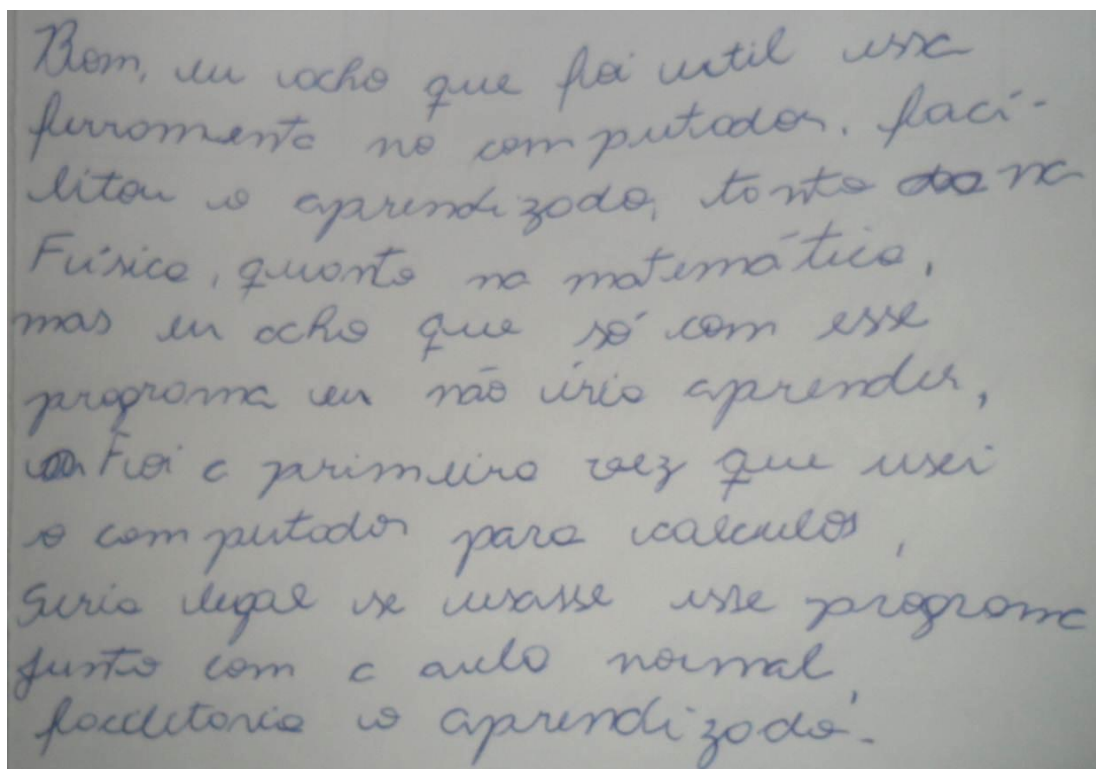 Bom, eu acho que foi util essa
ferramenta no computador. faci-
litou o aprendizado, tanto na
Física, quanto na matemática,
mas eu acho que só com esse
programa eu não iria aprender,
Foi a primeira vez que usei
o computador para calculos,
Seria legal se usasse esse programa
junto com a aula normal,
facilitaria o aprendizado.